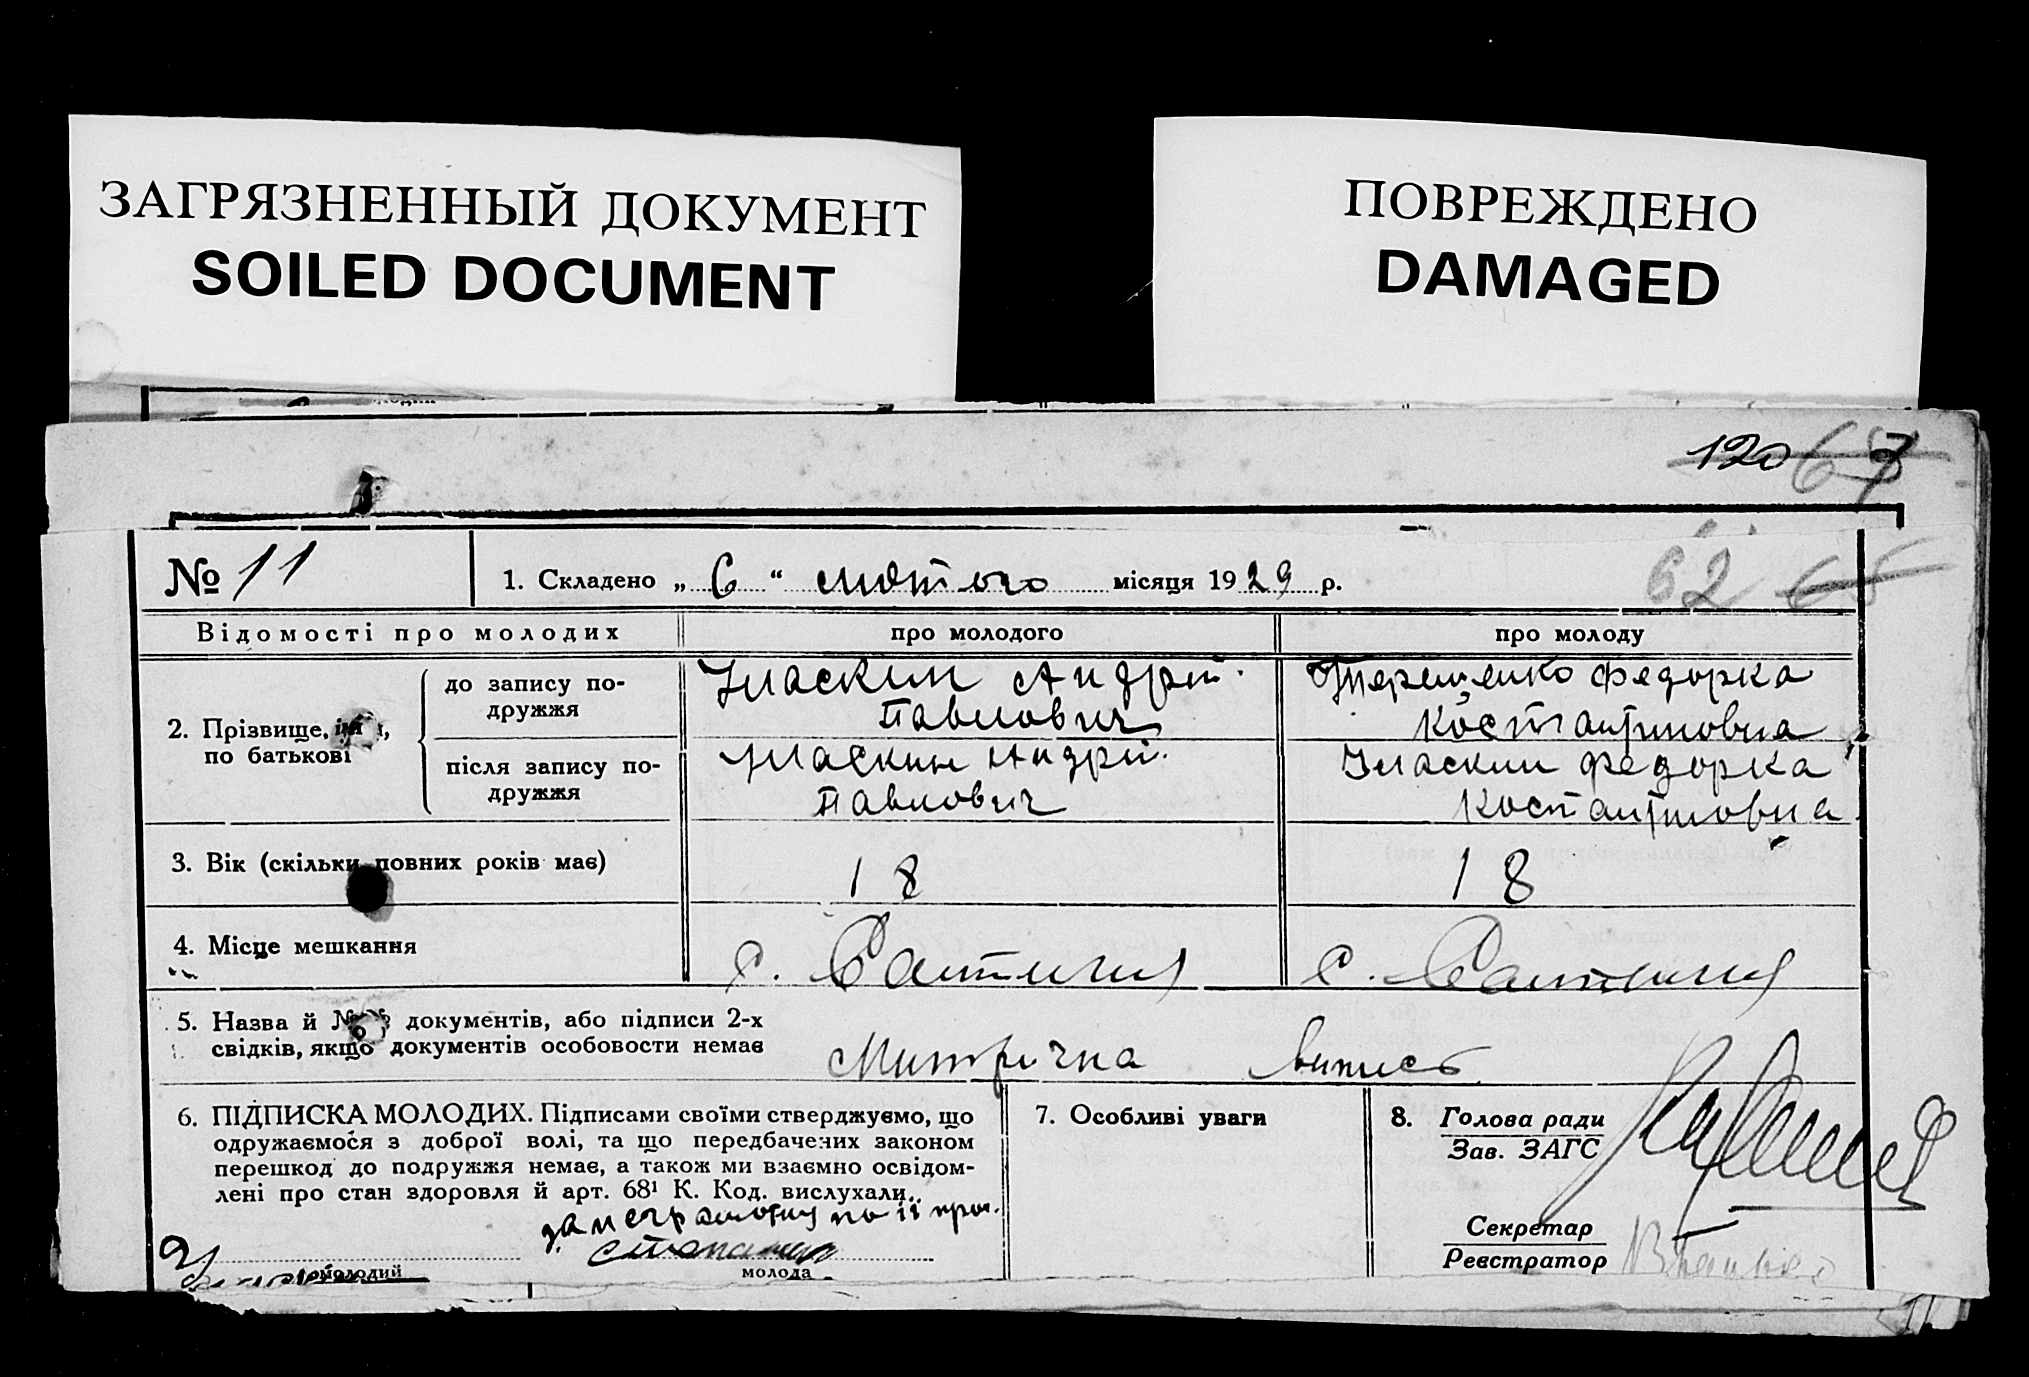 ЗАГРЯЗНЕННЫЙ ДОКУМЕНТ
SOILED DOCUMENT
ПОВРЕЖДЕНО
DAMAGED
120 67
62 65
№ 11
1. Складено „ 6 “ лютого місяця 1929 р.
Відомості про молодих
про молодого
про молоду
2. Прізвище, ім'я, по батькові
до запису подружжя
Андрій
Павлович
Терещенко Федорка
Костантиновна
після запису подружжя
Андрій
Павлович
Федорка
Костантиновна
3. Вік (скільки повних років має)
18
18
4. Місце мешкання
с.
с.
5. Назва й №№ документів, або підписи 2-х
свідків, якщо документів особовости немає
Митрична випись
6. ПІДПИСКА МОЛОДИХ. Підписами своїми стверджуємо, що
одружаємося з доброї волі, та що передбачених законом
перешкод до подружжя немає, а також ми взаємно освідом-
лені про стан здоровля й арт. 68¹ К. Код. вислухали.
за неграмотну по її прох.
молодий
молода
7. Особливі уваги
8. Голова ради
Зав. ЗАГС
Секретар
Реєстратор